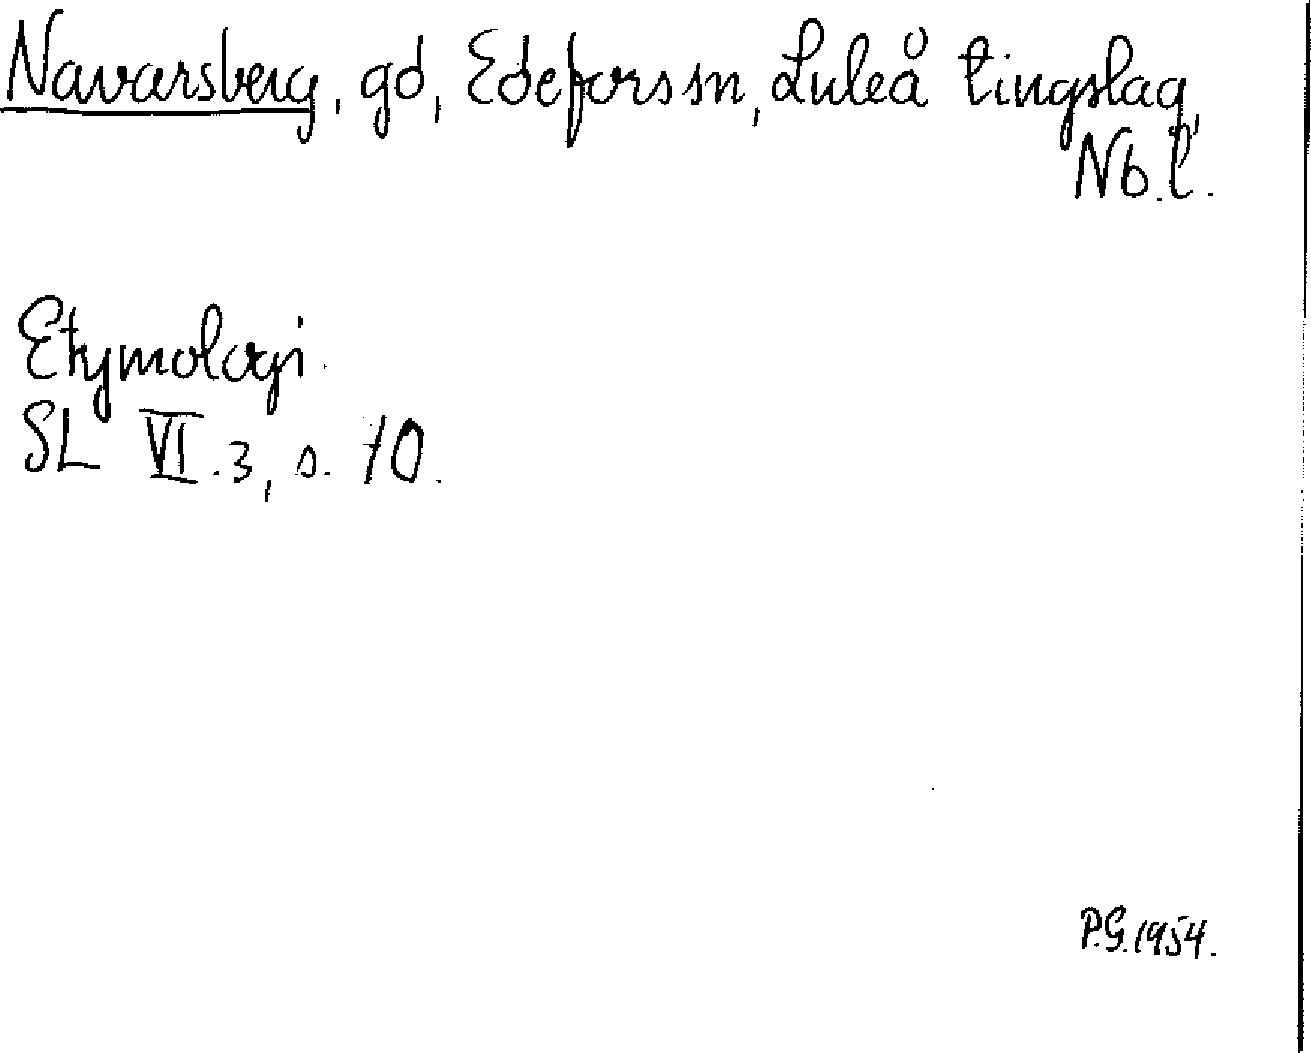 Navarsberg, gd, Edefors sn, Luleå tingslag,
Nb.l.
Etymologi.
SL VI.3, s. 70.
P.G. 1954.